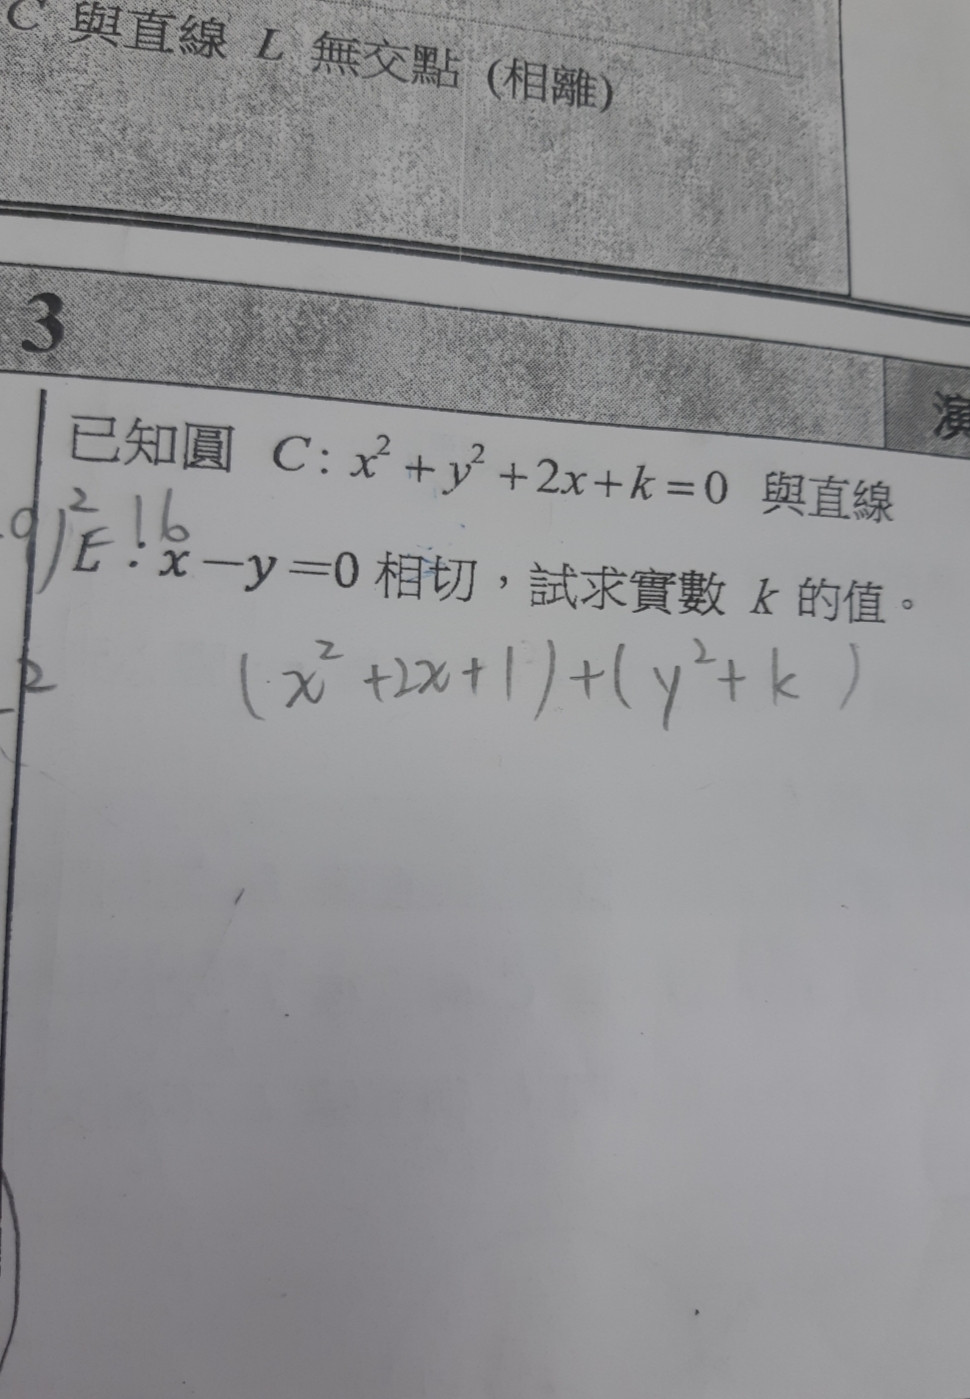 C 與直線 L 無交點 (相離)
3
演
已知圓 C: x² + y² + 2x + k = 0 與直線
)² 16
L : x − y = 0 相切,試求實數 k 的值。
2
(x² + 2x + 1) + (y² + k )